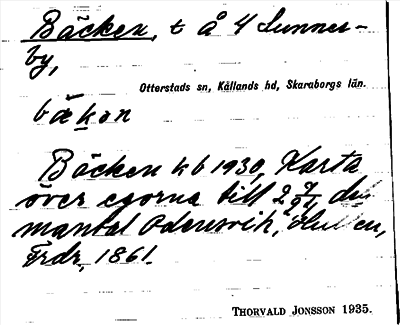 Bäcken, t å 4 Sunner-
by,
Otterstads sn, Kållands hd, Skaraborgs län.
bäkən
Bäcken kb 1930, Karta
över egorna till 2
mantal Odensvik,
Frdr, 1861.
THORVALD JONSSON 1935.